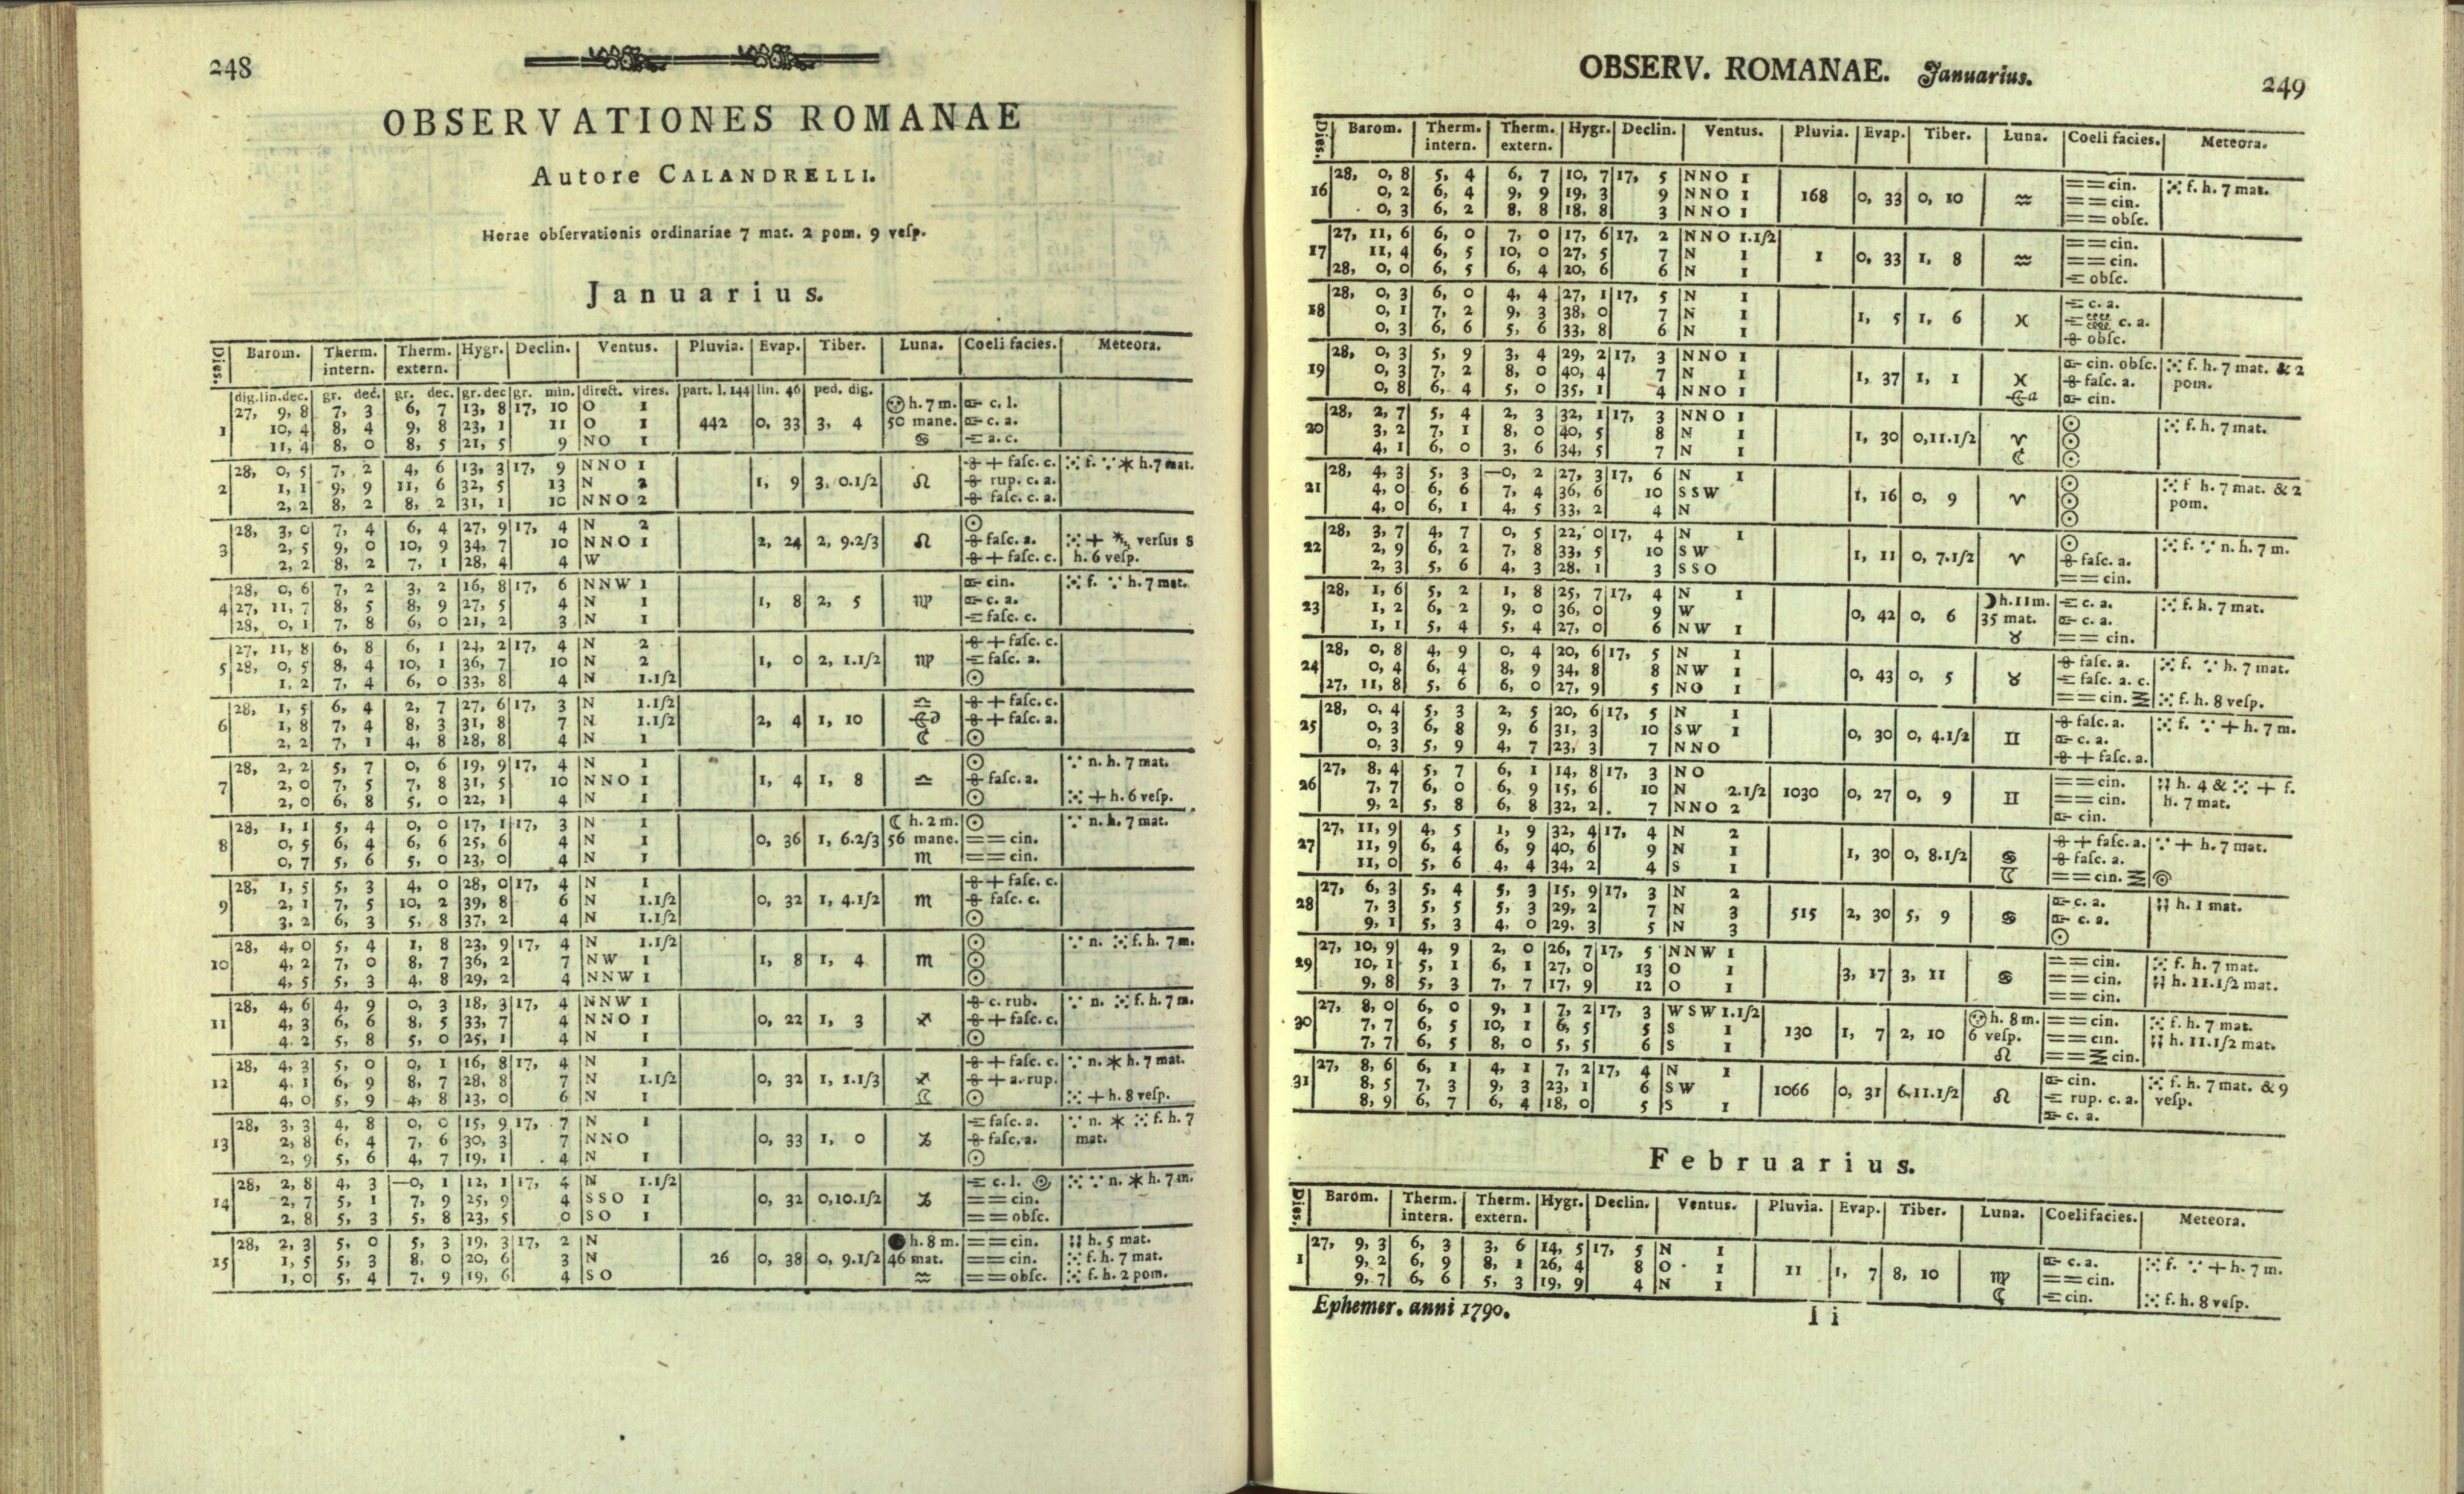 248
OBSERVATIONES ROMANAE
Autore CALANDRELLI.
Horae obſervationis ordinariae 7 mat. 2 pom. 9 veſp.
Januarius.
Dies. Barom. Therm. intern. Therm. extern. Hygr. Declin. Ventus. Pluvia. Evap. Tiber. Luna. Coeli facies. Meteora.
dig.lin.dec. gr. dec. gr. dec. gr.dec gr. min. direct. vires. part. l. 144 lin. 46 ped. dig.
27, 9, 8 7, 3 6, 7 13, 8 17, 10 O 1 h. 7 m. c. l.
1 10, 4 8, 4 9, 8 23, 1 11 O 1 442 0, 33 3, 4 50 mane. c. a.
11, 4 8, 0 8, 5 21, 5 9 NO 1 ♋ a. c.
28, 0, 5 7, 2 4, 6 13, 3 17, 9 NNO 1 + faſc. c. f. h. 7 mat.
2 1, 1 9, 9 11, 6 32, 5 13 N 2 1, 9 3, 0.1/2 ♌ rup. c. a.
2, 2 8, 2 8, 2 31, 1 10 NNO 2 faſc. c. a.
28, 3, 0 7, 4 6, 4 27, 9 17, 4 N 2 ☉
3 2, 5 9, 0 10, 9 34, 7 10 NNO 1 2, 24 2, 9.2/3 ♌ faſc. a. + verſus S
2, 2 8, 2 7, 1 28, 4 4 W + faſc. c. h. 6 veſp.
28, 0, 6 7, 2 3, 2 16, 8 17, 6 NNW 1 cin. f. h. 7 mat.
4 27, 11, 7 8, 5 8, 9 27, 5 4 N 1 1, 8 2, 5 ♍ c. a.
28, 0, 1 7, 8 6, 0 21, 2 3 N 1 faſc. c.
27, 11, 8 6, 8 6, 1 24, 2 17, 4 N 2 + faſc. c.
5 28, 0, 5 8, 4 10, 1 36, 7 10 N 2 1, 0 2, 1.1/2 ♍ faſc. a.
1, 2 7, 4 6, 0 33, 8 4 N 1.1/2 ☉
28, 1, 5 6, 4 2, 7 27, 6 17, 3 N 1.1/2 ♎ + faſc. c.
6 1, 8 7, 4 8, 3 31, 8 7 N 1.1/2 2, 4 1, 10 + faſc. a.
2, 2 7, 1 4, 8 28, 8 4 N 1 ☾ ☉
28, 2, 2 5, 7 0, 6 19, 9 17, 4 N 1 ☉ n. h. 7 mat.
7 2, 0 7, 5 7, 8 31, 5 10 NNO 1 1, 4 1, 8 ♎ faſc. a.
2, 0 6, 8 5, 0 22, 1 4 N 1 ☉ + h. 6 veſp.
28, 1, 1 5, 4 0, 0 17, 1 17, 3 N 1 ☾ h. 2 m. ☉ n. h. 7 mat.
8 0, 5 6, 4 6, 6 25, 6 4 N 1 0, 36 1, 6.2/3 56 mane. == cin.
0, 7 5, 6 5, 0 23, 0 4 N 1 ♏ == cin.
28, 1, 5 5, 3 4, 0 28, 0 17, 4 N 1 + faſc. c.
9 2, 1 7, 5 10, 2 39, 8 6 N 1.1/2 0, 32 1, 4.1/2 ♏ faſc. c.
3, 2 6, 3 5, 8 37, 2 4 N 1.1/2 ☉
28, 4, 0 5, 4 1, 8 23, 9 17, 4 N 1.1/2 ☉ n. f. h. 7 m.
10 4, 2 7, 0 8, 7 36, 2 7 NW 1 1, 8 1, 4 ♏ ☉
4, 5 5, 3 4, 8 29, 2 4 NNW 1 ☉
28, 4, 6 4, 9 0, 3 18, 3 17, 4 NNW 1 c. rub. n. f. h. 7 m.
11 4, 3 6, 6 8, 5 33, 7 4 NNO 1 0, 22 1, 3 ♐ + faſc. c.
4, 2 5, 8 5, 0 25, 1 4 N 1 ☉
28, 4, 3 5, 0 0, 1 16, 8 17, 4 N 1 + faſc. c. n. h. 7 mat.
12 4, 1 6, 9 8, 7 28, 8 7 N 1.1/2 0, 32 1, 1.1/3 ♐ + a. rup.
4, 0 5, 9 4, 8 23, 0 6 N 1 ☉ + h. 8 veſp.
28, 3, 3 4, 8 0, 0 15, 9 17, 7 N 1 faſc. a. n. f. h. 7
13 2, 8 6, 4 7, 6 30, 3 7 NNO 0, 33 1, 0 ♑ faſc. a. mat.
2, 9 5, 6 4, 7 19, 1 4 N 1 ☉
28, 2, 8 4, 3 —0, 1 12, 1 17, 4 N 1.1/2 c. l. n. h. 7 m.
14 2, 7 5, 1 7, 9 25, 9 4 SSO 1 0, 32 0,10.1/2 ♑ == cin.
2, 8 5, 3 5, 8 23, 5 0 SO 1 == obſc.
28, 2, 3 5, 0 5, 3 19, 3 17, 2 N h. 8 m. == cin. h. 5 mat.
15 1, 5 5, 3 8, 0 20, 6 3 N 26 0, 38 0, 9.1/2 46 mat. == cin. f. h. 7 mat.
1, 0 5, 4 7, 9 19, 6 4 SO ♒ == obſc. f. h. 2 pom.
OBSERV. ROMANAE. Januarius. 249
Dies. Barom. Therm. intern. Therm. extern. Hygr. Declin. Ventus. Pluvia. Evap. Tiber. Luna. Coeli facies. Meteora.
28, 0, 8 5, 4 6, 7 10, 7 17, 5 NNO 1 == cin. f. h. 7 mat.
16 0, 2 6, 4 9, 9 19, 3 9 NNO 1 168 0, 33 0, 10 ♒ == cin.
0, 3 6, 2 8, 8 18, 8 3 NNO 1 == obſc.
27, 11, 6 6, 0 7, 0 17, 6 17, 2 NNO 1.1/2 == cin.
17 11, 4 6, 5 10, 0 27, 5 7 N 1 1 0, 33 1, 8 ♒ == cin.
28, 0, 0 6, 5 6, 4 20, 6 6 N 1 obſc.
28, 0, 3 6, 0 4, 4 27, 1 17, 5 N 1 c. a.
18 0, 1 7, 2 9, 3 38, 0 7 N 1 1, 5 1, 6 ♓ c. a.
0, 3 6, 6 5, 6 33, 8 6 N 1 obſc.
28, 0, 3 5, 9 3, 4 29, 2 17, 3 NNO 1 cin. obſc. f. h. 7 mat. & 2
19 0, 3 7, 2 8, 0 40, 4 7 N 1 1, 37 1, 1 ♓ faſc. a. pom.
0, 8 6, 4 5, 0 35, 1 4 NNO 1 cin.
28, 2, 7 5, 4 2, 3 32, 1 17, 3 NNO 1 ☉ f. h. 7 mat.
20 3, 2 7, 1 8, 0 40, 5 8 N 1 1, 30 0,11.1/2 ♈ ☉
4, 1 6, 0 3, 6 34, 5 7 N 1 ☾ ☉
28, 4, 3 5, 3 —0, 2 27, 3 17, 6 N 1 ☉ f h. 7 mat. & 2
21 4, 0 6, 6 7, 4 36, 6 10 SSW 1, 16 0, 9 ♈ ☉ pom.
4, 0 6, 1 4, 5 33, 2 4 N ☉
28, 3, 7 4, 7 0, 5 22, 0 17, 4 N 1 ☉ f. n. h. 7 m.
22 2, 9 6, 2 7, 8 33, 5 10 SW 1, 11 0, 7.1/2 ♈ faſc. a.
2, 3 5, 6 4, 3 28, 1 3 SSO == cin.
28, 1, 6 5, 2 1, 8 25, 7 17, 4 N 1 ☽ h. 11 m. c. a. f. h. 7 mat.
23 1, 2 6, 2 9, 0 36, 0 9 W 0, 42 0, 6 35 mat. c. a.
1, 1 5, 4 5, 4 27, 0 6 NW 1 ♉ == cin.
28, 0, 8 4, 9 0, 4 20, 6 17, 5 N 1 faſc. a. f. h. 7 mat.
24 0, 4 6, 4 8, 9 34, 8 8 NW 1 0, 43 0, 5 ♉ faſc. a. c.
27, 11, 8 5, 6 6, 0 27, 9 5 NO 1 == cin. f. h. 8 veſp.
28, 0, 4 5, 3 2, 5 20, 6 17, 5 N 1 faſc. a. f. + h. 7 m.
25 0, 3 6, 8 9, 6 31, 3 10 SW 1 0, 30 0, 4.1/2 ♊ c. a.
0, 3 5, 9 4, 7 23, 3 7 NNO + faſc. a.
27, 8, 4 5, 7 6, 1 14, 8 17, 3 NO == cin. h. 4 & + f.
26 7, 7 6, 0 6, 9 15, 6 10 N 2.1/2 1030 0, 27 0, 9 ♊ == cin. h. 7 mat.
9, 2 5, 8 6, 8 32, 2 7 NNO 2 cin.
27, 11, 9 4, 5 1, 9 32, 4 17, 4 N 2 + faſc. a. + h. 7 mat.
27 11, 9 6, 4 6, 9 40, 6 9 N 1 1, 30 0, 8.1/2 ♋ faſc. a.
11, 0 5, 6 4, 4 34, 2 4 S 1 == cin.
27, 6, 3 5, 4 5, 3 15, 9 17, 3 N 2 c. a. h. 1 mat.
28 7, 3 5, 5 5, 3 29, 2 7 N 3 515 2, 30 5, 9 ♋ c. a.
9, 1 5, 3 4, 0 29, 3 5 N 3 ☉
27, 10, 9 4, 9 2, 0 26, 7 17, 5 NNW 1 == cin. f. h. 7 mat.
29 10, 1 5, 1 6, 1 27, 0 13 O 1 3, 17 3, 11 ♋ == cin. h. 11.1/2 mat.
9, 8 5, 3 7, 7 17, 9 12 O 1 == cin.
27, 8, 0 6, 0 9, 1 7, 2 17, 3 WSW 1.1/2 h. 8 m. == cin. f. h. 7 mat.
30 7, 7 6, 5 10, 1 6, 5 5 S 1 130 1, 7 2, 10 6 veſp. == cin. h. 11.1/2 mat.
7, 7 6, 5 8, 0 5, 5 6 S 1 ♌ == cin.
27, 8, 6 6, 1 4, 1 7, 2 17, 4 N 1 cin. f. h. 7 mat. & 9
31 8, 5 7, 3 9, 3 23, 1 6 SW 1066 0, 31 6,11.1/2 ♌ rup. c. a. veſp.
8, 9 6, 7 6, 4 18, 0 5 S 1 c. a.
Februarius.
Dies. Barom. Therm. intern. Therm. extern. Hygr. Declin. Ventus. Pluvia. Evap. Tiber. Luna. Coeli facies. Meteora.
27, 9, 3 6, 3 3, 6 14, 5 17, 5 N 1 c. a. f. + h. 7 m.
1 9, 2 6, 9 8, 1 26, 4 8 O 1 11 1, 7 8, 10 ♍ == cin.
9, 7 6, 6 5, 3 19, 9 4 N 1 ☾ cin. f. h. 8 veſp.
Ephemer. anni 1790. I i